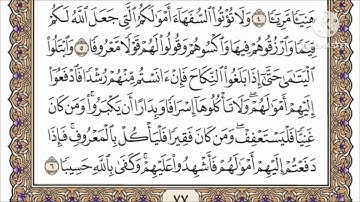 هَنِيٓـًٔا مَّرِيٓـًٔا ٤ وَلَا تُؤْتُوا۟ ٱلسُّفَهَآءَ أَمْوَٰلَكُمُ ٱلَّتِى جَعَلَ ٱللَّهُ لَكُمْ
قِيَٰمًا وَٱرْزُقُوهُمْ فِيهَا وَٱكْسُوهُمْ وَقُولُوا۟ لَهُمْ قَوْلًا مَّعْرُوفًا ٥ وَٱبْتَلُوا۟
ٱلْيَتَٰمَىٰ حَتَّىٰٓ إِذَا بَلَغُوا۟ ٱلنِّكَاحَ فَإِنْ ءَانَسْتُم مِّنْهُمْ رُشْدًا فَٱدْفَعُوٓا۟
إِلَيْهِمْ أَمْوَٰلَهُمْ ۖ وَلَا تَأْكُلُوهَآ إِسْرَافًا وَبِدَارًا أَن يَكْبَرُوا۟ ۚ وَمَن كَانَ
غَنِيًّا فَلْيَسْتَعْفِفْ ۖ وَمَن كَانَ فَقِيرًا فَلْيَأْكُلْ بِٱلْمَعْرُوفِ ۚ فَإِذَا
دَفَعْتُمْ إِلَيْهِمْ أَمْوَٰلَهُمْ فَأَشْهِدُوا۟ عَلَيْهِمْ ۚ وَكَفَىٰ بِٱللَّهِ حَسِيبًا ٦
٧٧